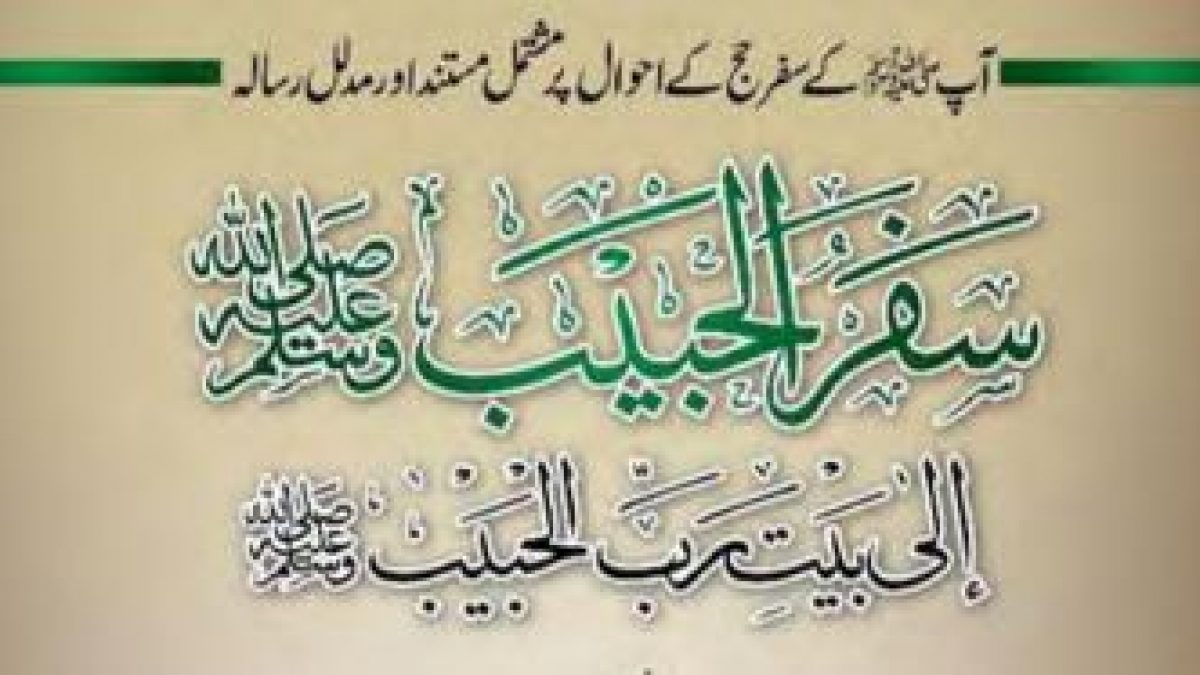 آپ ﷺ کے سفر حج کے احوال پر مشتمل مستند اور مدلل رسالہ
سفر الحبیب صلی اللہ علیہ وسلم
إلی بیت رب الحبیب صلی اللہ علیہ وسلم